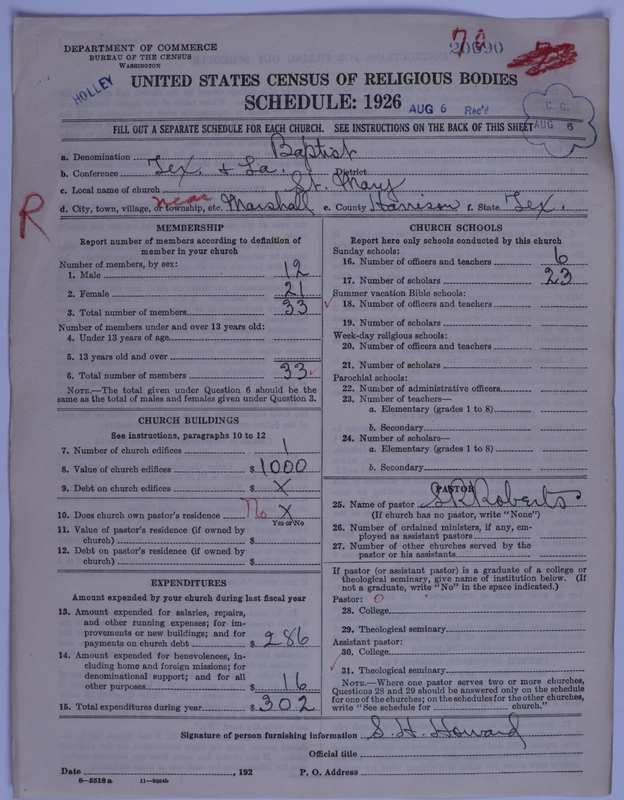 DEPARTMENT OF COMMERCE
BUREAU OF THE CENSUS
WASHINGTON
HOLLEY
20690
UNITED STATES CENSUS OF RELIGIOUS BODIES
SCHEDULE: 1926
AUG 6 Rec'd
C. C.
AUG 6
FILL OUT A SEPARATE SCHEDULE FOR EACH CHURCH. SEE INSTRUCTIONS ON THE BACK OF THIS SHEET
a. Denomination Baptist
b. Conference Tex. & La. District
c. Local name of church St. Mary
d. City, town, village, or township, etc. near Marshall e. County Harrison f. State Tex.
R
MEMBERSHIP
Report number of members according to definition of
member in your church
Number of members, by sex:
1. Male 12
2. Female 21
3. Total number of members 33
Number of members under and over 13 years old:
4. Under 13 years of age
5. 13 years old and over
6. Total number of members 33
NOTE.—The total given under Question 6 should be the
same as the total of males and females given under Question 3.
CHURCH BUILDINGS
See instructions, paragraphs 10 to 12
7. Number of church edifices 1
8. Value of church edifices $ 1000
9. Debt on church edifices $ X
10. Does church own pastor's residence? No X
Yes or No
11. Value of pastor's residence (if owned by
church) $
12. Debt on pastor's residence (if owned by
church) $
EXPENDITURES
Amount expended by your church during last fiscal year
13. Amount expended for salaries, repairs,
and other running expenses; for im-
provements or new buildings; and for
payments on church debt $ 286
14. Amount expended for benevolences, in-
cluding home and foreign missions; for
denominational support; and for all
other purposes $ 16
15. Total expenditures during year $ 302
CHURCH SCHOOLS
Report here only schools conducted by this church
Sunday schools:
16. Number of officers and teachers 6
17. Number of scholars 23
Summer vacation Bible schools:
18. Number of officers and teachers
19. Number of scholars
Week-day religious schools:
20. Number of officers and teachers
21. Number of scholars
Parochial schools:
22. Number of administrative officers
23. Number of teachers—
a. Elementary (grades 1 to 8)
b. Secondary
24. Number of scholars—
a. Elementary (grades 1 to 8)
b. Secondary
PASTOR
25. Name of pastor S R Roberts
(If church has no pastor, write "None")
26. Number of ordained ministers, if any, em-
ployed as assistant pastors
27. Number of other churches served by the
pastor or his assistants
If pastor (or assistant pastor) is a graduate of a college or
theological seminary, give name of institution below. (If
not a graduate, write "No" in the space indicated.)
Pastor: 0
28. College
29. Theological seminary
Assistant pastor:
30. College
31. Theological seminary
NOTE.—Where one pastor serves two or more churches,
Questions 28 and 29 should be answered only on the schedule
for one of the churches; on the schedules for the other churches,
write "See schedule for church."
Signature of person furnishing information S. H. Howard
Official title
Date , 192 P. O. Address
8—5518a 11—9024b